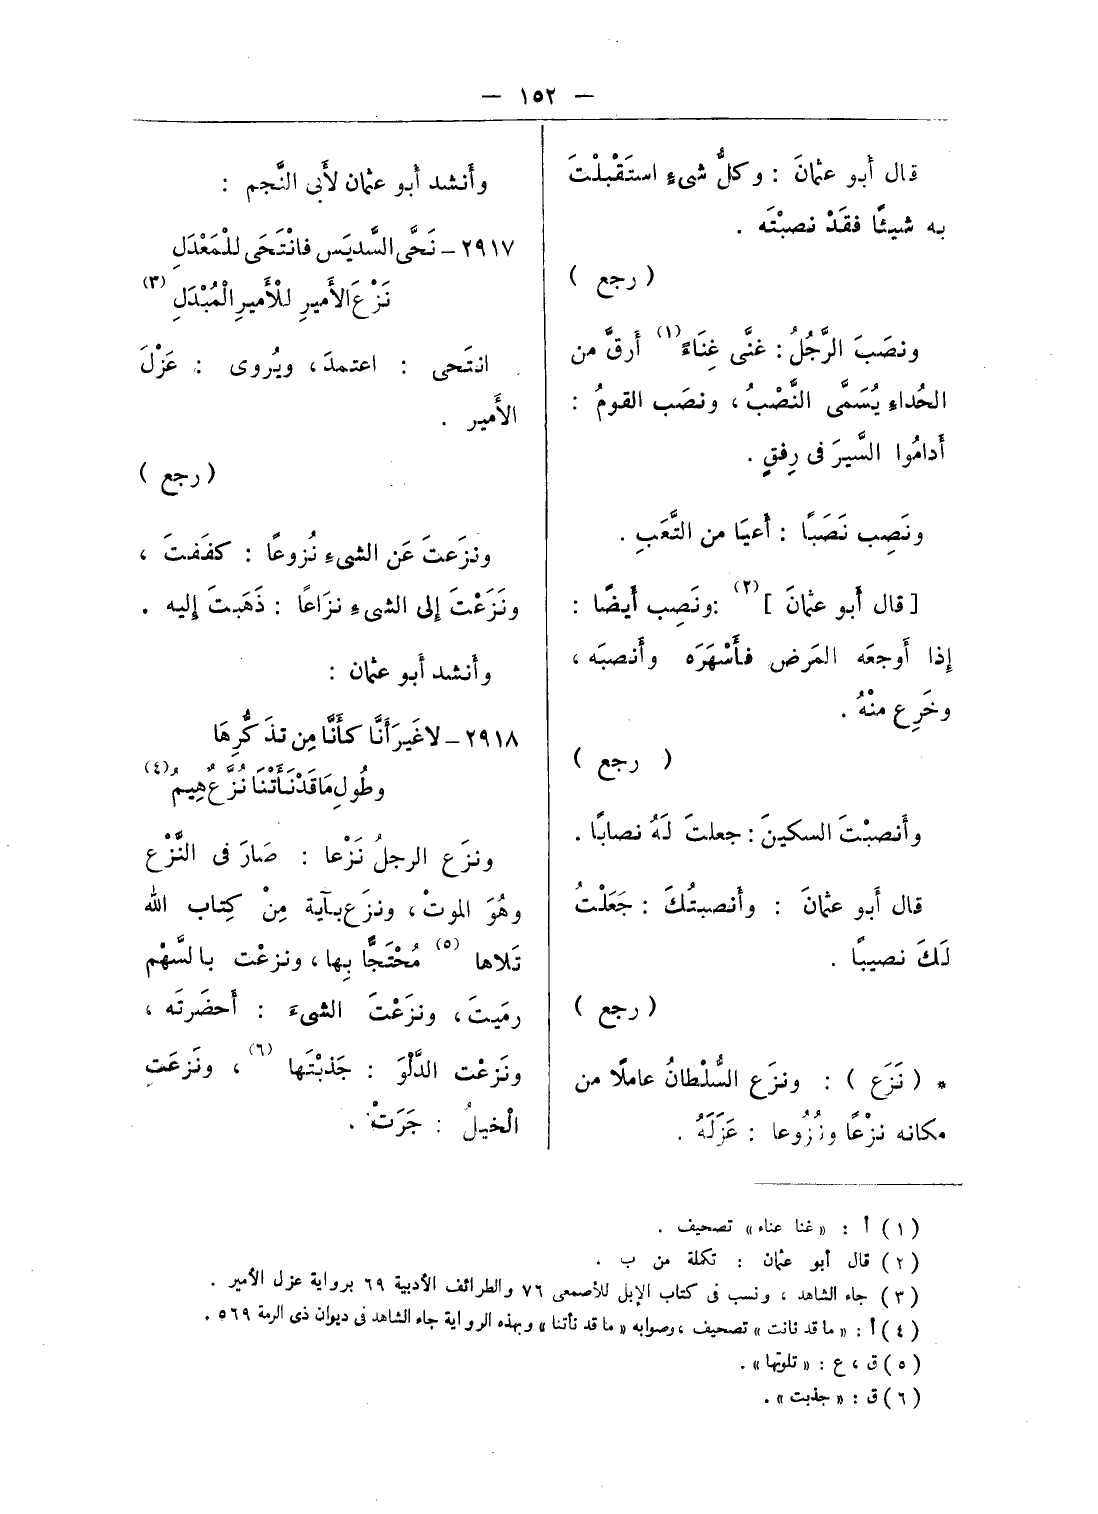 — ١٥٢ —
قال أَبو عثمانَ : وكلُّ شىءٍ استَقْبلْتَ
به شيئًا فقَدْ نصبْتَه .
( رجع )
ونصَبَ الرَّجُلُ : غنَّى غِنَاءً (١) أَرقَّ من
الحُداءِ يُسَمَّى النَّصْبُ ، ونصَب القومُ :
أَدامُوا السَّيرَ فى رِفقٍ .
ونَصِب نَصَبًا : أَعيَا من التَّعَبِ .
[ قال أَبو عثمانَ ] (٢) : ونَصِب أَيضًا :
إِذا أَوجعَه المَرض فأَسْهَرَه وأَنصبَه ،
وخَرِع منْهُ .
( رجع )
وأَنصبْتَ السكينَ : جعلتَ لَهُ نصابًا .
قال أَبو عثمانَ : وأَنصبتُكَ : جَعَلْتُ
لَكَ نصيبًا .
( رجع )
* ( نَزَع ) : ونزَع السُّلْطانُ عاملًا من
مكانه نزْعًا ونُزُوعا : عَزَلَهُ .
وأَنشد أَبو عثمان لأَبى النَّجم :
٢٩١٧ – نَحَّى السَّديَس فانْتَحَى للمَعْدَلِ
نَزْعَ الأَميرِ للْأَميرِ الْمُبْدَلِ (٣)
انتَحى : اعتمدَ ، ويُروى : عَزْلَ
الأَمير .
( رجع )
ونزَعتَ عَن الشىءِ نُزوعًا : كفَفتَ ،
ونَزَعْتَ إِلى الشىءِ نزَاعًا : ذَهَبتَ إِليه .
وأَنشد أَبو عثمان :
٢٩١٨ – لا غَيرَ أَنَّا كأَنَّا مِن تذَكُّرِهَا
وطُولِ مَا قَدْ نَأَتْنَا نُزَّعٌ هِيمُ (٤)
ونزَع الرجلُ نَزْعا : صَارَ فى النَّزْع
وهُوَ الموتْ ، ونزَع بآية مِنْ كِتاب الله
تَلاها (٥) مُحْتَجًّا بِها ، ونزعْت بالسَّهْم
رميتَ ، ونزَعْتَ الشىءَ : أَحضَرتَه ،
ونَزعْت الدَّلْوَ : جَذبْتَها (٦) ، ونَزعَتِ
الْخيلُ : جَرَتْ .
(١) أ : « غنا عناء » تصحيف .
(٢) قال أبو عثمان : تكملة من ب .
(٣) جاء الشاهد ، ونسب فى كتاب الإبل للأصمعى ٧٦ والطرائف الأدبية ٦٩ برواية عزل الأمير .
(٤) أ : « ما قد نانت » تصحيف ، وصوابه « ما قد نأتنا » وبهذه الرواية جاء الشاهد فى ديوان ذى الرمة ٥٦٩ .
(٥) ق ، ع : « تلوتها » .
(٦) ق : « جذبت » .